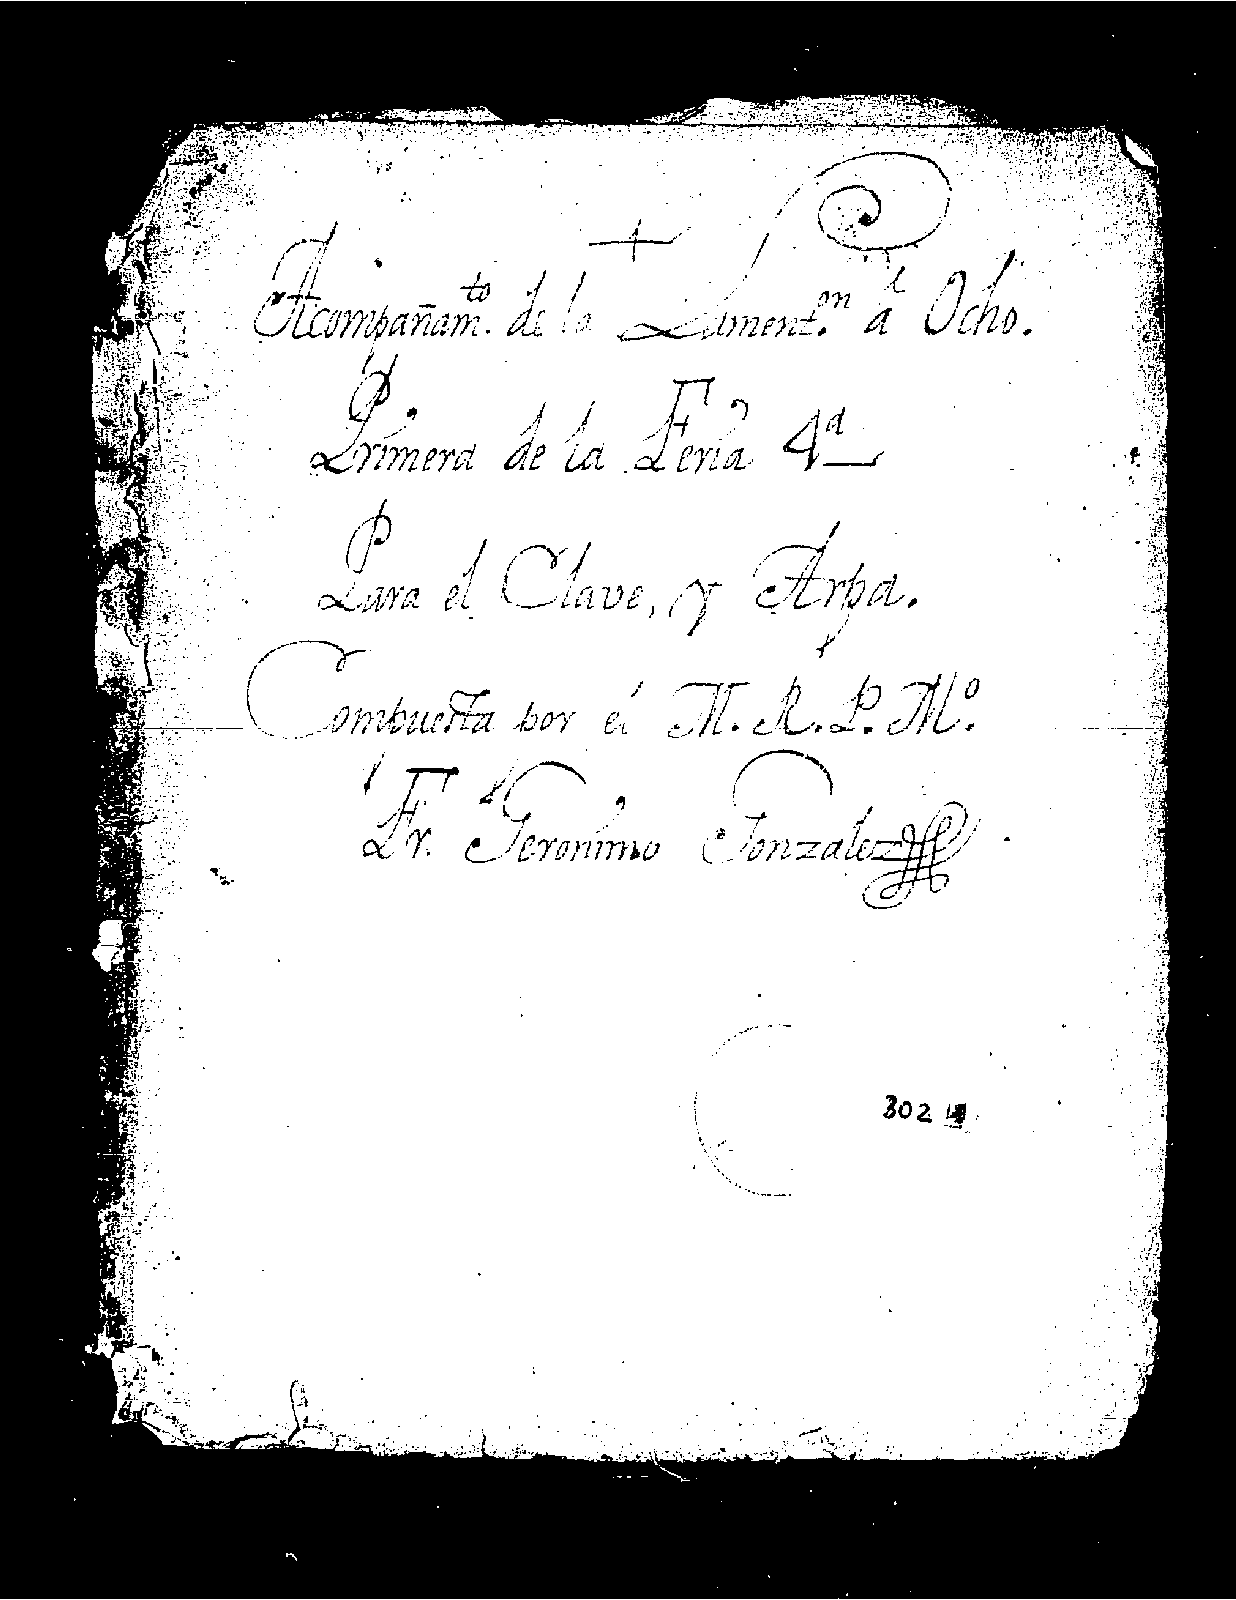 +
Acompañam.to de la Lament.on a Ocho.
Primera de la Feria 4a
Para el Clave, y Arpa.
Compuesta por el M. R. P. Mo.
Fr. Geronimo Gonzalez
302